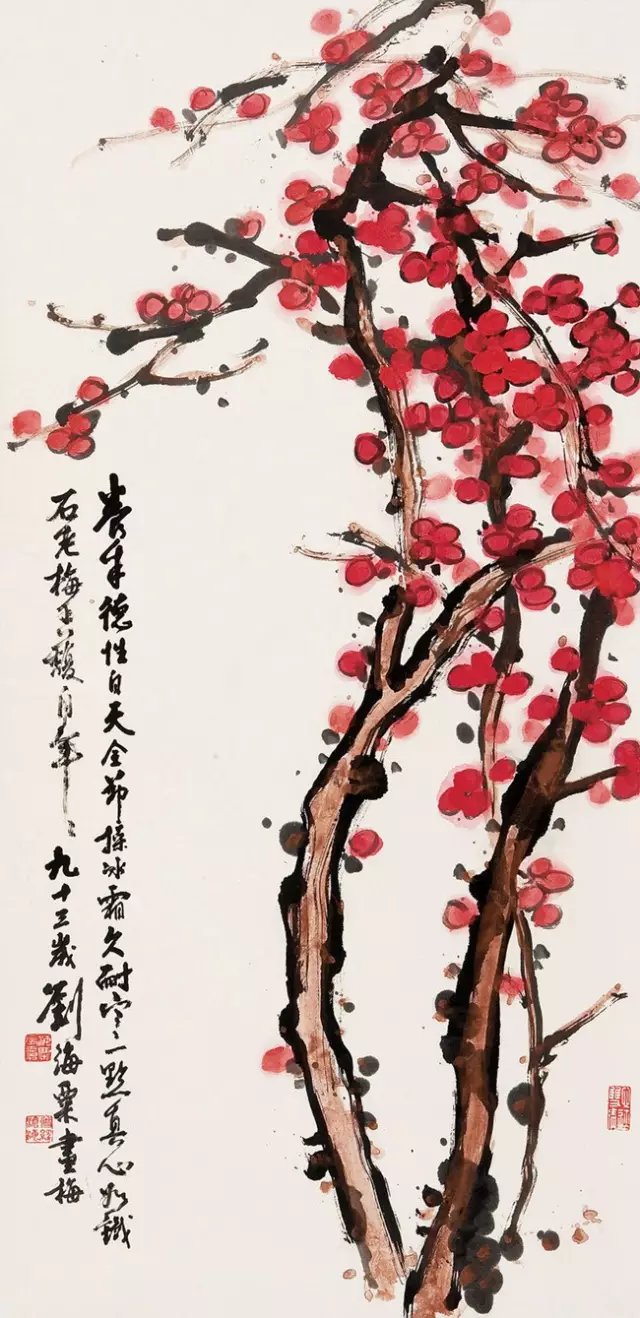 養來德性自天全節操冰霜久耐寒一點真心如鐵
石老梅香馥自年〻九十三歲劉海粟畫梅